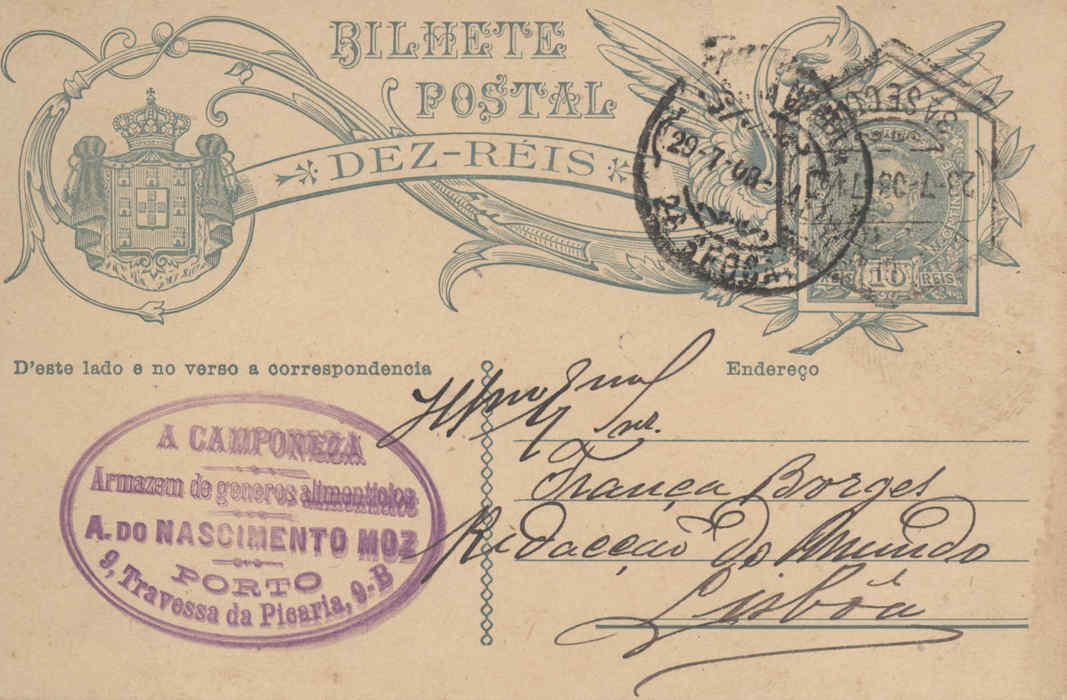 BILHETE
POSTAL
DEZ-RÉIS
29-7-08
2A SECC
3A SECÇ
23-7-08
REIS 10 REIS
D'este lado e no verso a correspondencia
Endereço
A CAMPONEZA
Armazem de generos alimenticios
A. DO NASCIMENTO MOZ
PORTO
9, Travessa da Picaria, 9-B
Illmo Exmo
Snr.
França Borges
Redacção do Mundo
Lisbôa